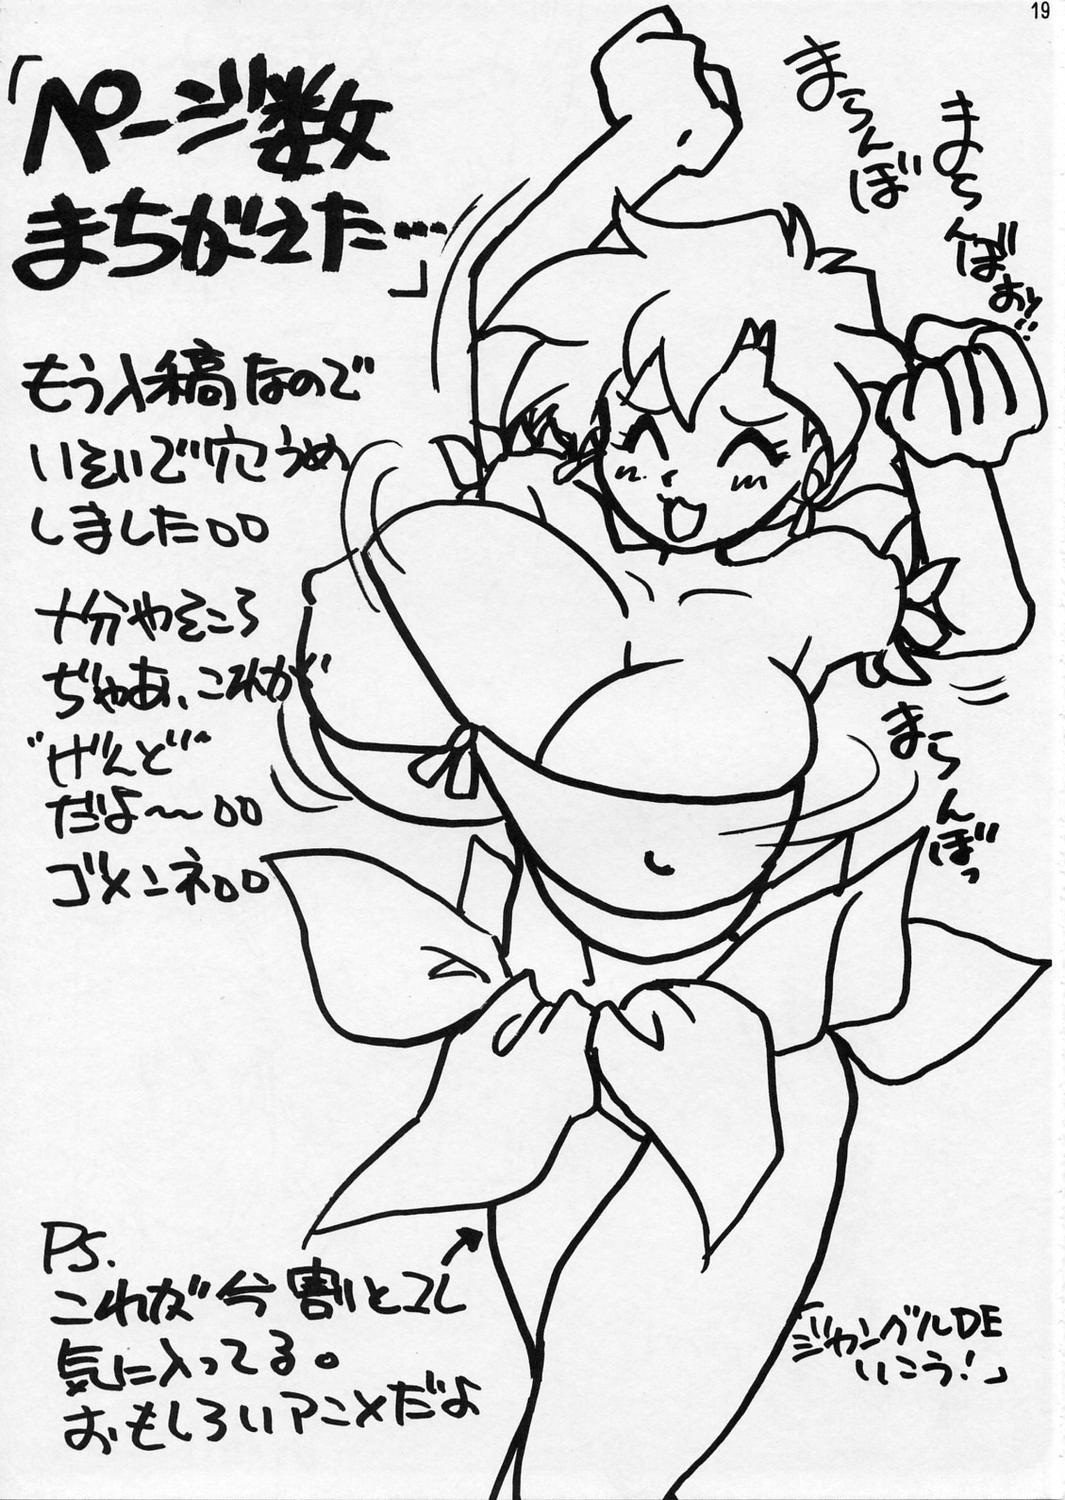 19
「ページ数
まちがえた…」
もう入稿なので
いそいで穴うめ
しました。。
十分やそころ
ぢゃあ、これが
"げんど"
だよ〜。。
ゴメンネ。。
まらんぼ
まらんばおォ!!
まらんぼっ
PS.
これが今割とコレ
気に入ってる。
おもしろいアニメだよ
「ジャングルDE
いこう!」